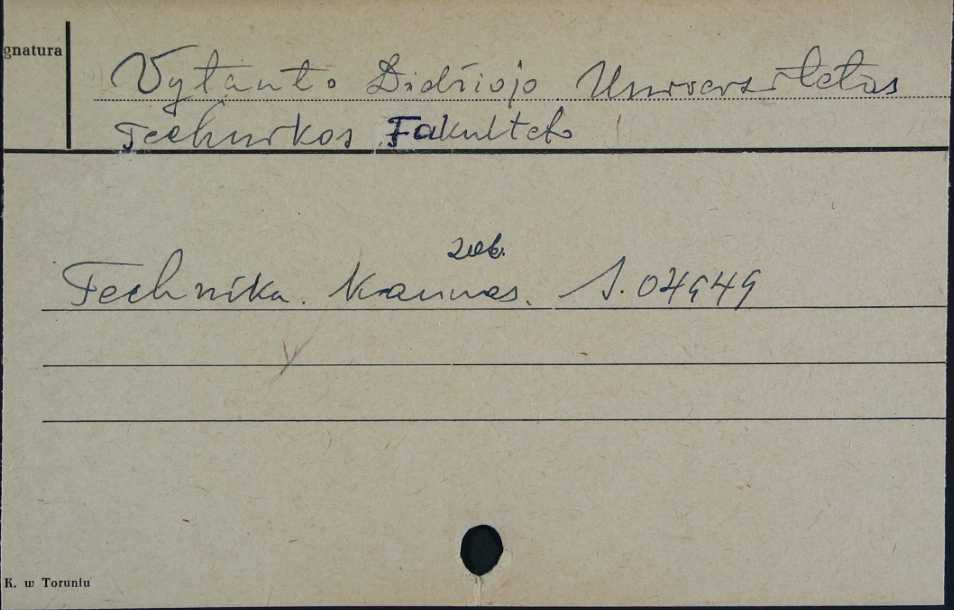 gnatura
Vytauto Didžiojo Universitetas
Technikos Fakulteto
zob.
Technika. Kaunas. S. 04949
K. w Toruniu